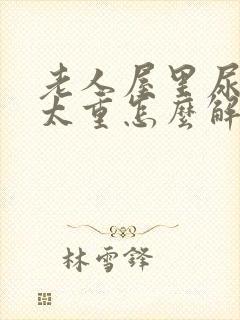 老人屋里尿
太重怎麽解
林雪鋒